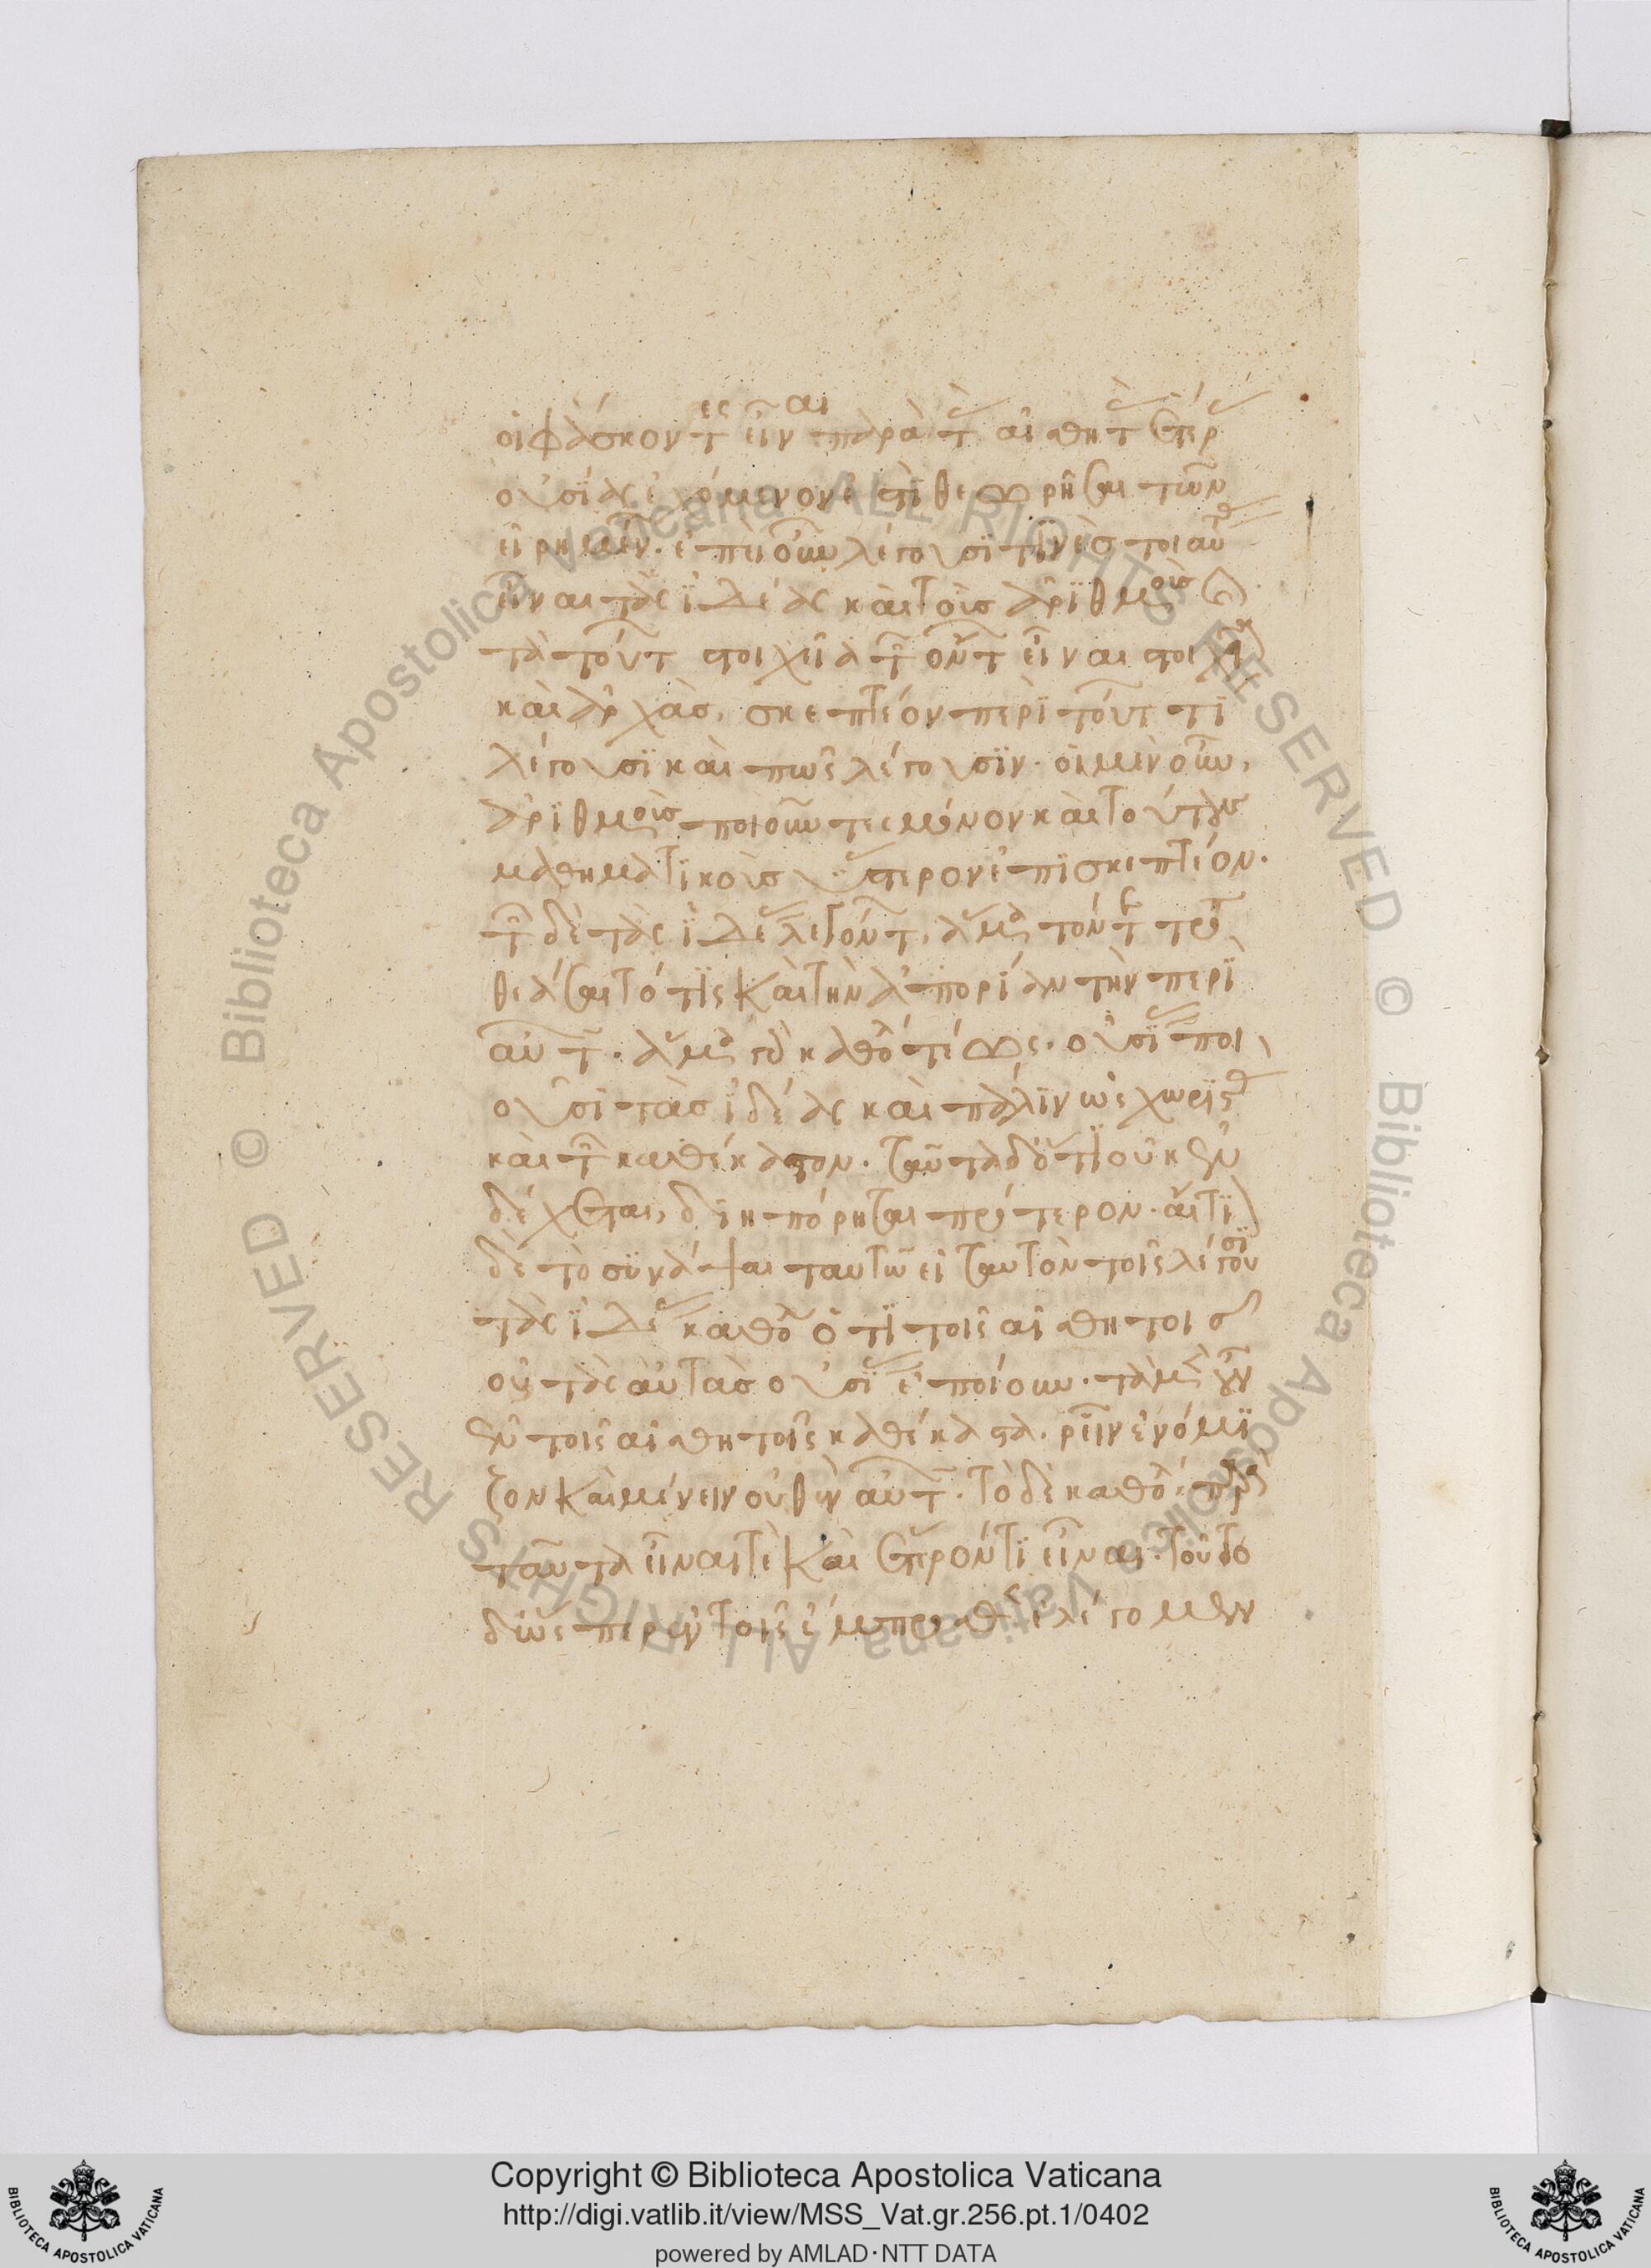 οἱ φάσκοντες εἶναι παρὰ τὰς αἰσθητὰς ἑτέρας
οὐσίας ἐχόμενον ἐστὶ θεωρῆσαι τῶν
εἰρημένων. ἐπεὶ οὖν λέγουσί τινες τοιαύτας
εἶναι τὰς ἰδέας καὶ τοὺς ἀριθμοὺς καὶ
τὰ τούτων στοιχεῖα τῶν ὄντων εἶναι στοιχεῖα
καὶ ἀρχὰς, σκεπτέον περὶ τούτων τί
λέγουσι καὶ πῶς λέγουσιν. οἱ μὲν οὖν,
ἀριθμοὺς ποιοῦντες μόνον καὶ τούτους
μαθηματικοὺς ὕστερον ἐπισκεπτέον.
τῶν δὲ τὰς ἰδέας λεγόντων, ἅμα τόν τε τρόπον
θεάσαιτό τις καὶ τὴν ἀπορίαν τὴν περὶ
αὐτῶν. ἅμα γὰρ καθόλου τε ὡς οὐσίας ποι
οῦσι τὰς ἰδέας καὶ πάλιν ὡς χωριστὰς
καὶ τῶν καθέκαστον. ταῦτα δ' ὅτι οὐκ ἐν
δέχεται, διηπόρηται πρότερον. αἴτιον
δὲ τὸ συνάψαι ταυτῶ εἰ ταυτὸν τοῖς λέγουσι
τὰς ἰδέας καθόλου ὅτι τοῖς αἰσθητοῖς
οὐ τὰς αὐτὰς οὐσίας ἐποίουν. τὰ μὲν οὖν
ἐν τοῖς αἰσθητοῖς καθέκαστα. ρεῖν ἐνόμι
ζον καὶ μένειν οὐθὲν αὐτῶν. τὸ δὲ καθόλου παρὰ
ταῦτα εἶναι τὲ καὶ ἕτερόν τι εἶναι. τοῦτο
δ' ὥσπερ ἐν τοῖς ἔμπροσθεν ἐλέγομεν
Copyright © Biblioteca Apostolica Vaticana
http://digi.vatlib.it/view/MSS_Vat.gr.256.pt.1/0402
powered by AMLAD·NTT DATA